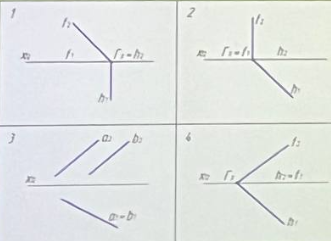 1
f₂
x₁₂ f₁ Γ₃≡h₂
h₁
2
f₂
x₁₂ Γ₃≡f₁ h₂
h₁
3
a₂ b₂
x₁₂
a₁≡b₁
4
f₂
x₁₂ Γ₃ h₂≡f₁
h₁